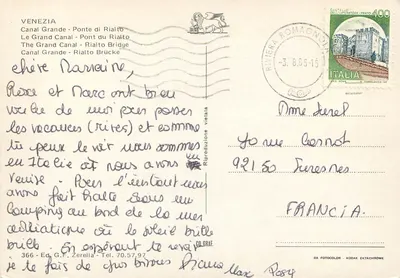 VENEZIA
Canal Grande - Ponte di Rialto
Le Grand Canal - Pont du Rialto
The Grand Canal - Rialto Bridge
Canal Grande - Rialto Brücke
400
ITALIA
RIVIERA ROMAGNOLA
Chère Marraine,
et Marc ont bien
voulu de moi pour passer
les vacances (rires) et comme
tu peux le voir nous sommes
en Italie et nous avons
Venise. Pour l'instant nous
avons fait halte dans un
camping au bord de la mer
adriatique où le soleil brille
brille. En espérant te revoir
je te fais de gros bisous
Max
Mme
rue Carnot
92150 Suresnes
FRANCIA.
Riproduzione vietata
366 - Ed. G.F. Zerella - Tel. 70.57.97